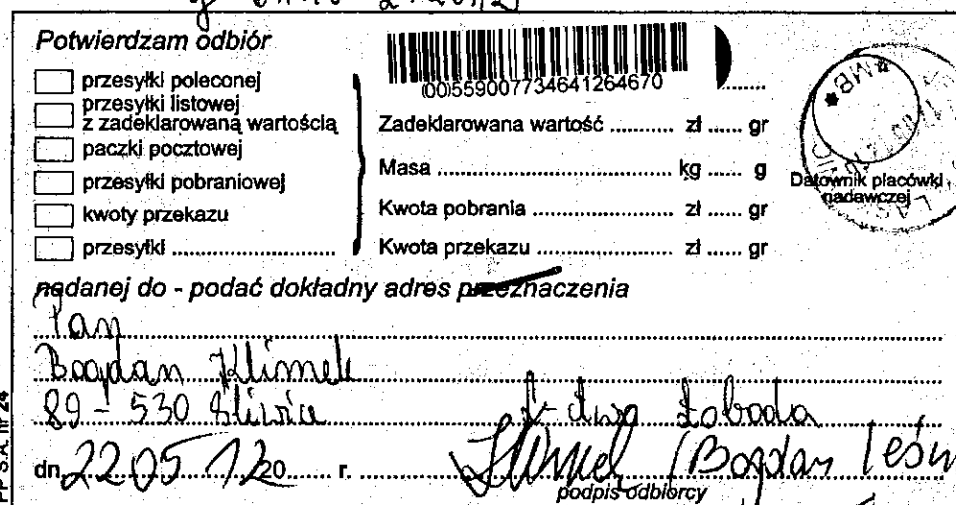 Potwierdzam odbiór
przesyłki poleconej
przesyłki listowej
z zadeklarowaną wartością
paczki pocztowej
przesyłki pobraniowej
kwoty przekazu
przesyłki ..............................
(00)559007734641264670
Zadeklarowana wartość ........... zł ...... gr
Masa ........................................ kg ...... g
Kwota pobrania ........................ zł ...... gr
Kwota przekazu ....................... zł ...... gr
MB
Datownik placówki
nadawczej
nadanej do - podać dokładny adres przeznaczenia
Pan
Bogdan Klimek
89-530 Śliwice
L-dwo Łoboda
dn. 22 05 12 20..... r. (Bogdan
podpis odbiorcy
PP S.A. nr 24